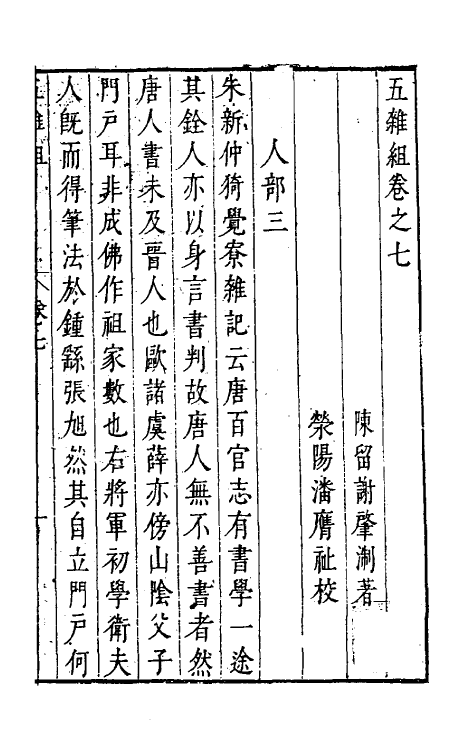 五雜組卷之七
陳留謝肇淛著
滎陽潘膺祉校
人部三
朱新仲猗覺寮雜記云唐百官志有書學一途
其銓人亦以身言書判故唐人無不善書者然
唐人書未及晋人也歐諸虞薛亦傍山陰父子
門戶耳非成佛作祖家數也右將軍初學衛夫
人旣而得筆法於鍾繇張旭然其自立門戶何